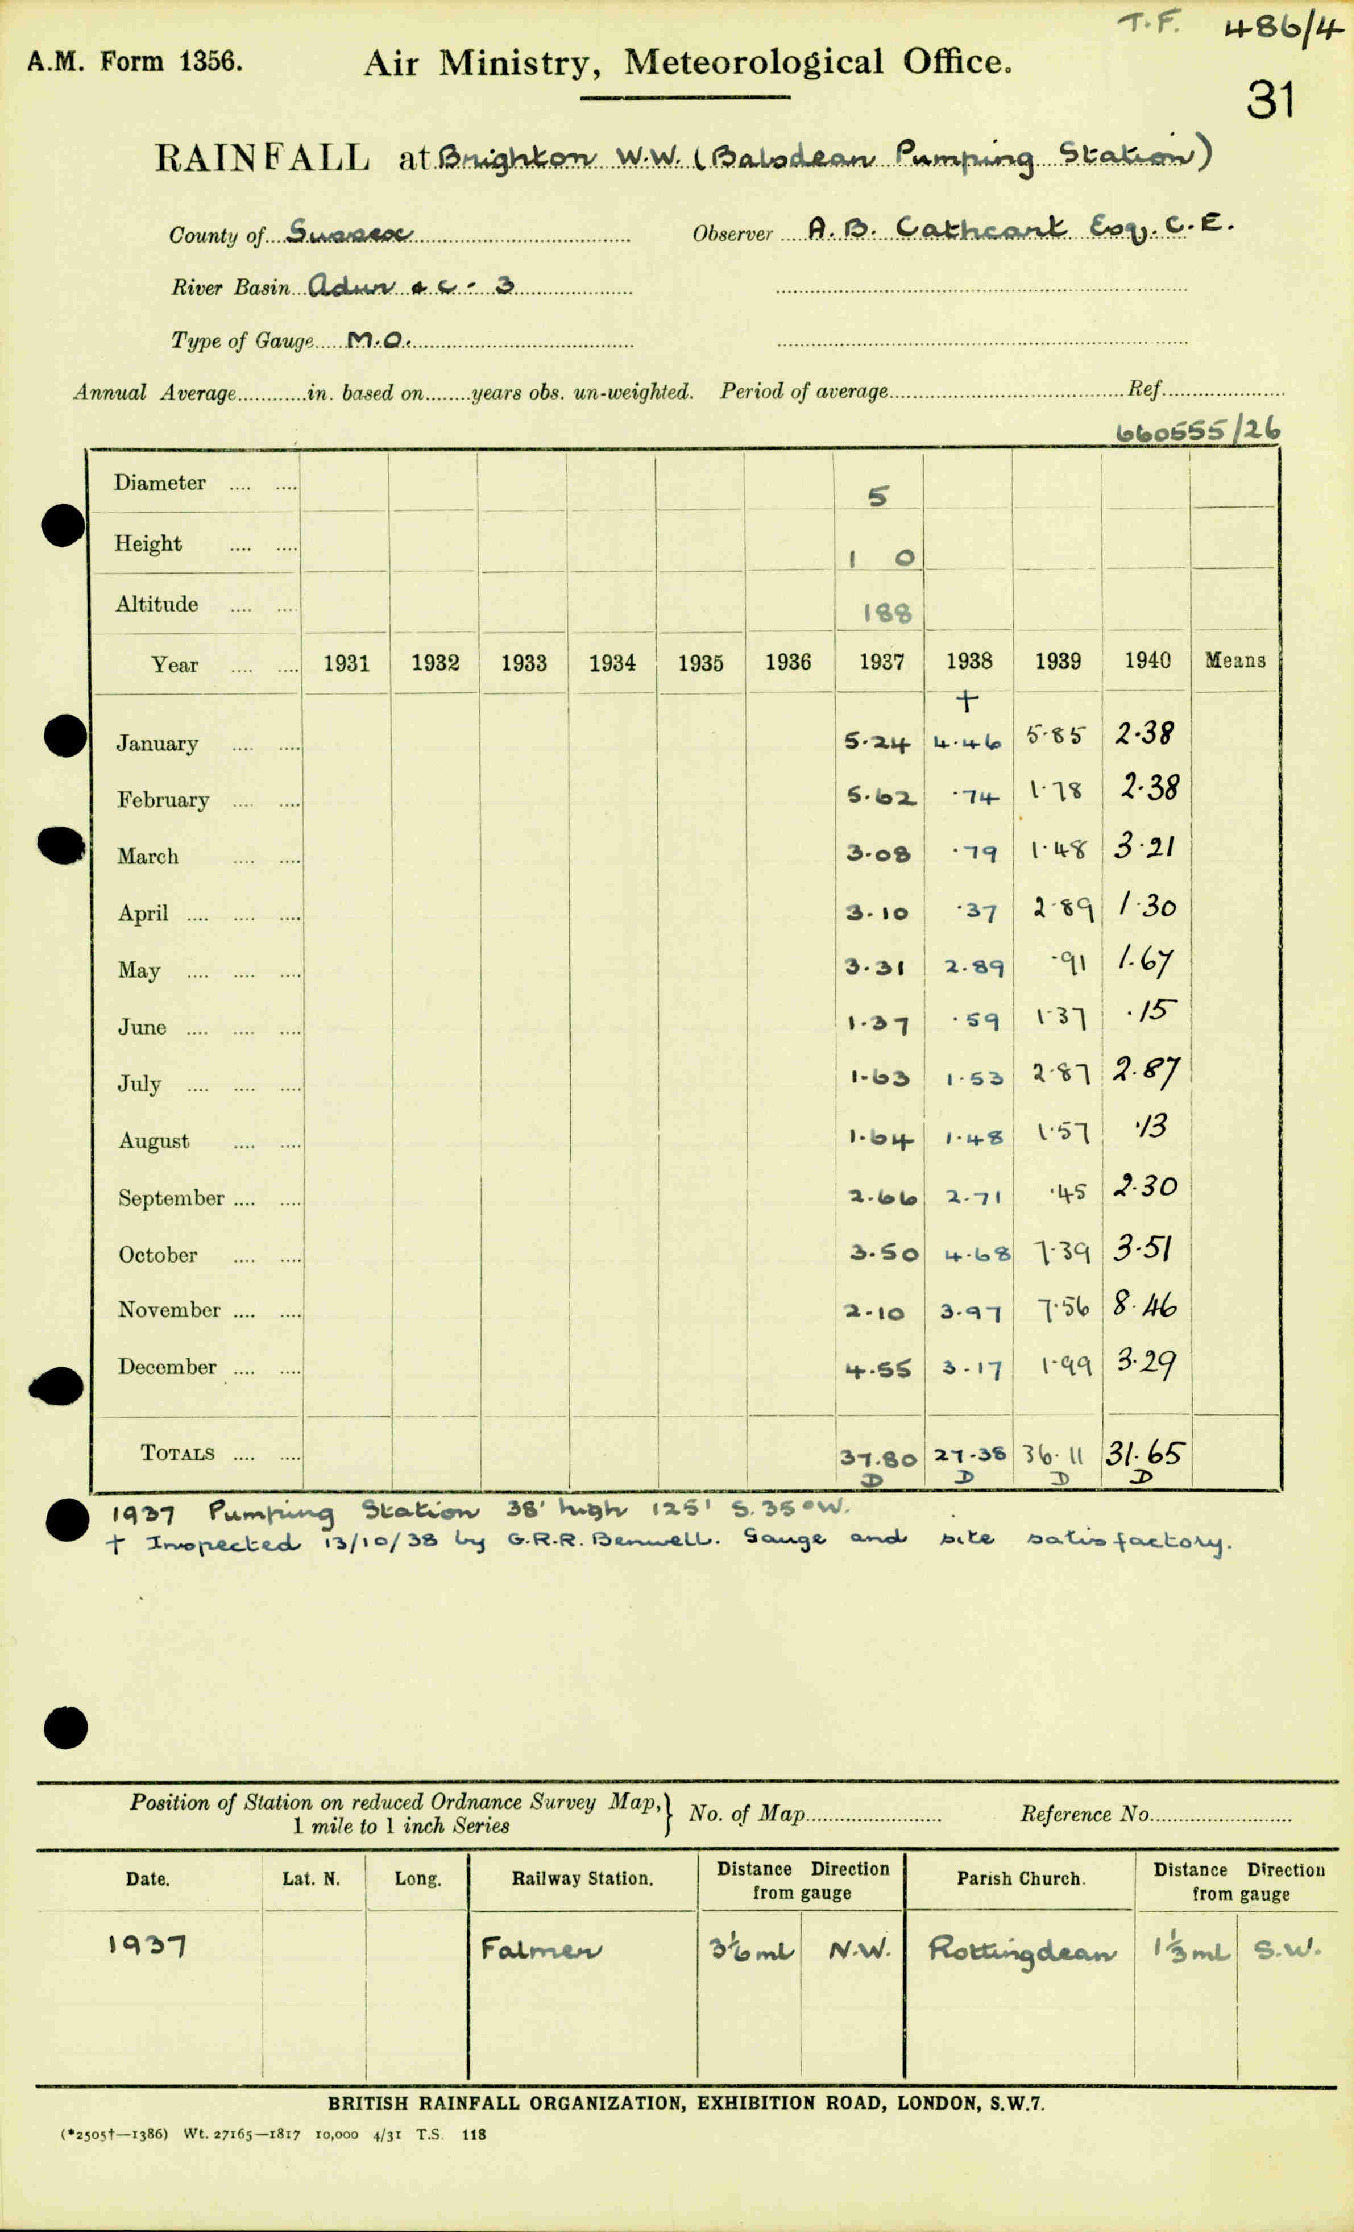 T.F. 486/4
A.M. Form 1356. Air Ministry, Meteorological Office.
31
RAINFALL at Brighton W.W. (Balsdean Pumping Station)
County of Sussex Observer A.B. Cathcart Esq. C.E.
River Basin Adur &c - 3
Type of Gauge M.O.
Annual Average............in. based on........years obs. un-weighted. Period of average........................Ref.....................
660555/26
Diameter .... .... 5
Height .... .... 1 0
Altitude .... .... 188
Year .... .... 1931 1932 1933 1934 1935 1936 1937 1938 1939 1940 Means
†
January .... .... 5.24 4.46 5.85 2.38
February .... .... 5.62 .74 1.78 2.38
March .... .... 3.08 .79 1.48 3.21
April .... .... .... 3.10 .37 2.89 1.30
May .... .... .... 3.31 2.89 .91 1.67
June .... .... .... 1.37 .59 1.37 .15
July .... .... .... 1.63 1.53 2.87 2.87
August .... .... 1.64 1.48 1.57 .13
September .... .... 2.66 2.71 .45 2.30
October .... .... 3.50 4.68 7.39 3.51
November .... .... 2.10 3.97 7.56 8.46
December .... .... 4.55 3.17 1.99 3.29
TOTALS .... .... 37.80 27.38 36.11 31.65
D D D D
1937 Pumping Station 38' high 125' S.35°W.
† Inspected 13/10/38 by G.R.R. Benwell. Gauge and site satisfactory.
Position of Station on reduced Ordnance Survey Map,} No. of Map........................ Reference No.........................
1 mile to 1 inch Series
Date. Lat. N. Long. Railway Station. Distance Direction from gauge Parish Church. Distance Direction from gauge
1937 Falmer 3⅙ ml N.W. Rottingdean 1⅓ ml S.W.
BRITISH RAINFALL ORGANIZATION, EXHIBITION ROAD, LONDON, S.W.7.
(*2505†—1386) Wt. 27165—1817 10,000 4/31 T.S. 118